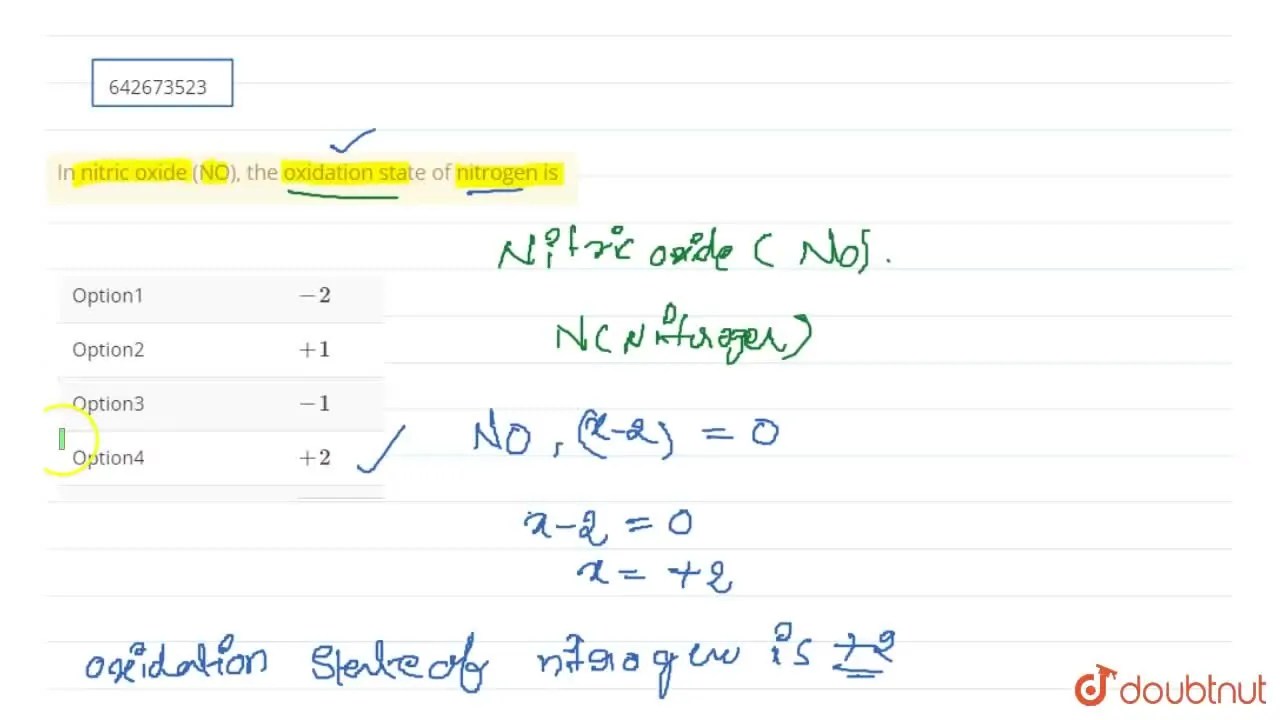 642673523
In nitric oxide (NO), the oxidation state of nitrogen is
Nitric oxide (NO).
N(Nitrogen)
Option1 -2
Option2 +1
Option3 -1
Option4 +2
NO, (x-2) = 0
x-2 = 0
x = +2
oxidation state of nitrogen is +2
doubtnut